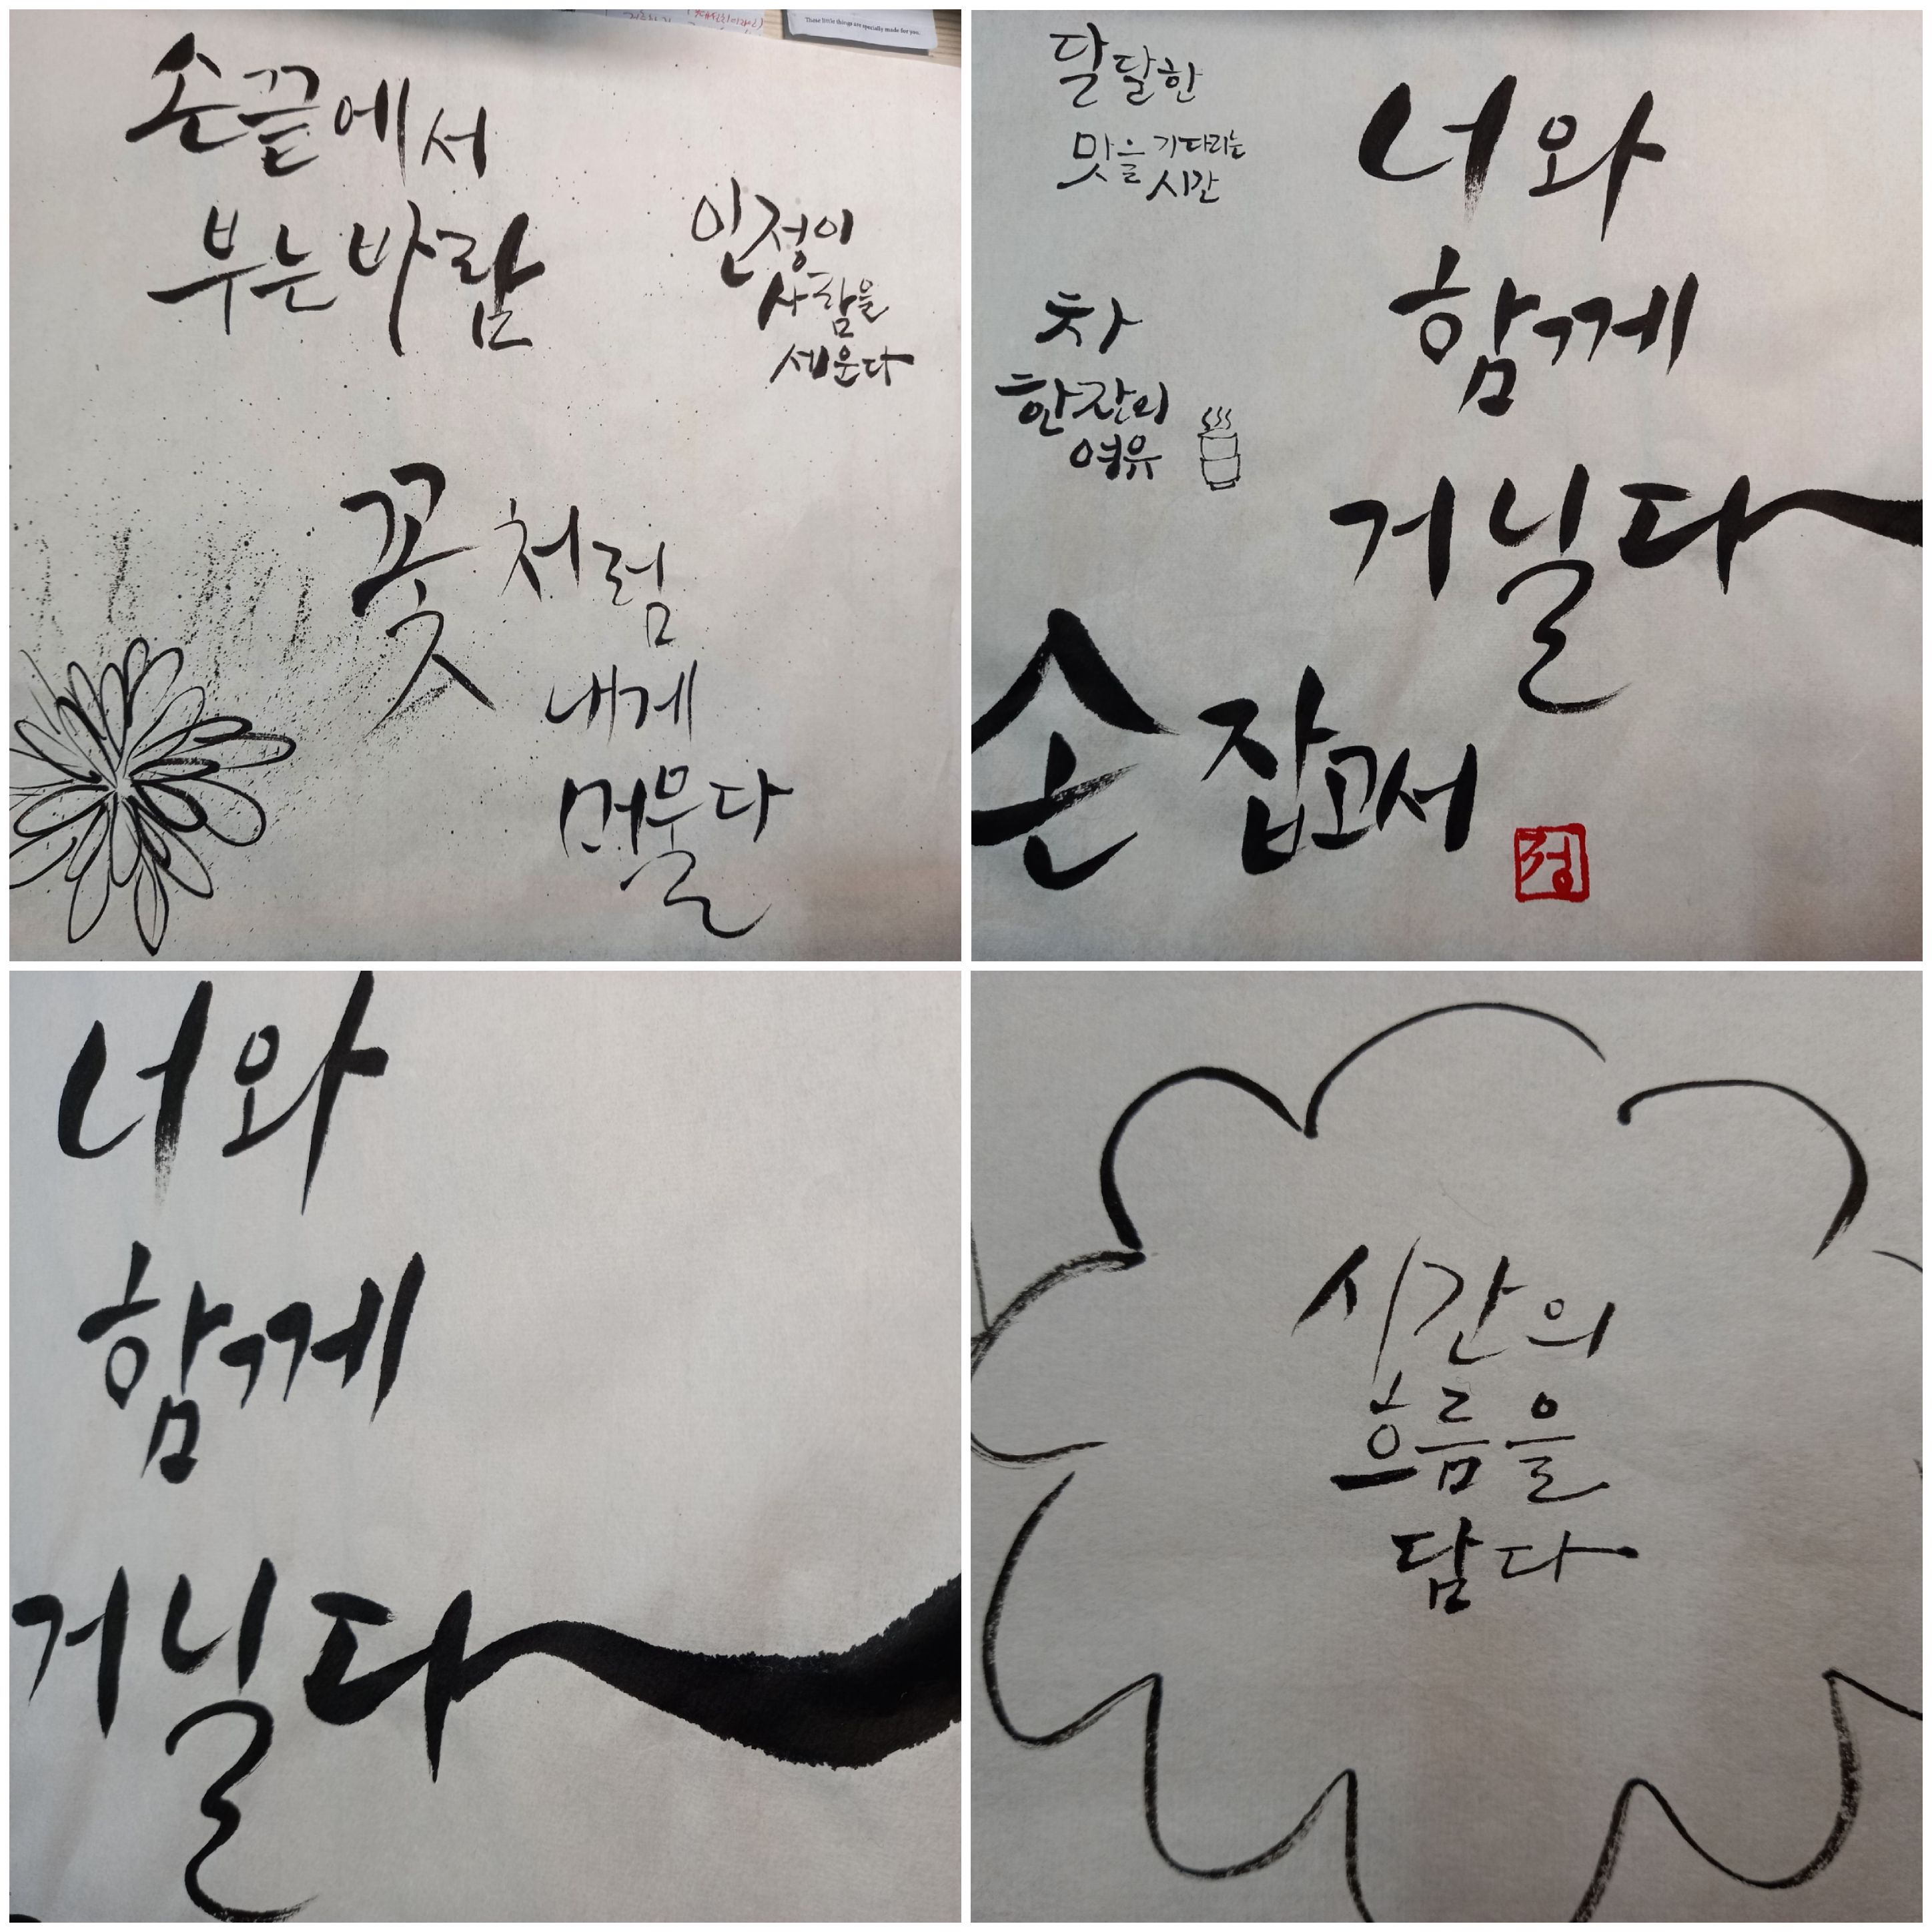 These little things are specially made for you.
손끝에서
부는 바람
인정이
사람을
세운다
꽃처럼
내게
머물다
달달한
맛을 기다리는
시간
차
한잔의
여유
너와
함께
거닐다
손잡고서
정
너와
함께
거닐다
시간의
흐름을
담다